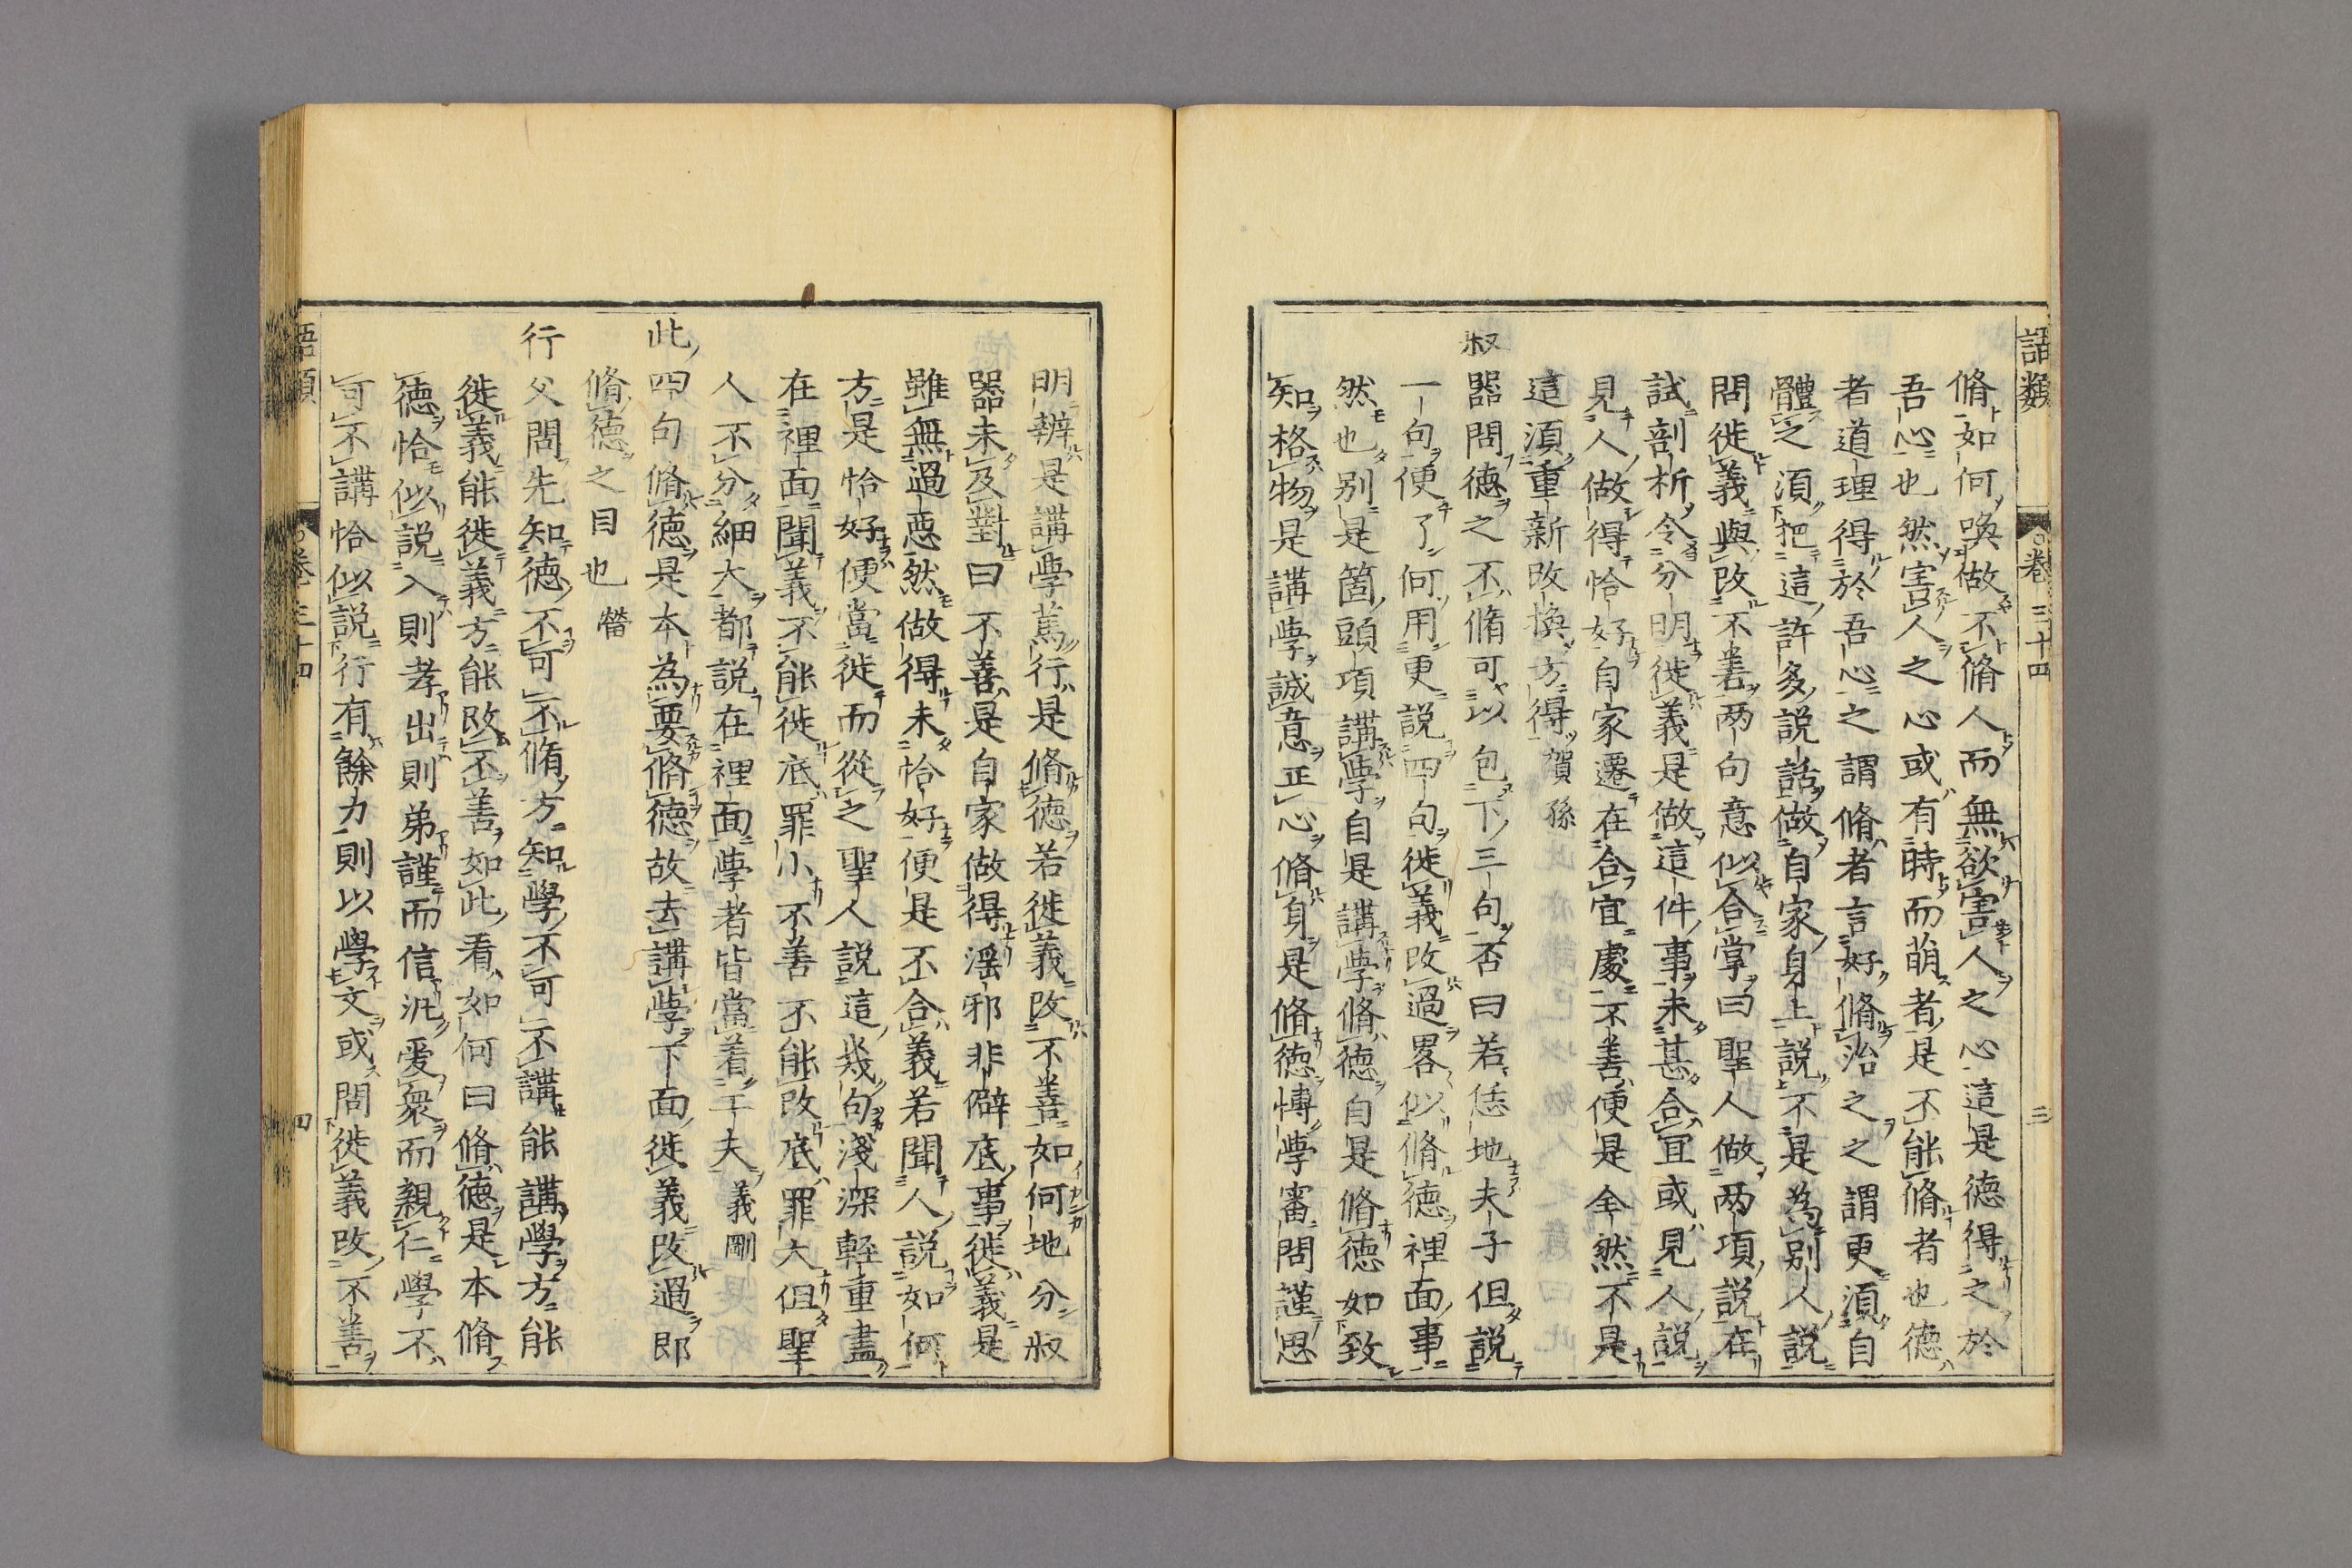 語類　卷三十四　三
脩如何喚做不脩人而無欲害人之心這是德得之於
吾心也然害人之心或有時而萌者是不能脩者也德
者道理得於吾心之謂脩者言好脩治之之謂更湏自
體之湏把這許多説話做自家身上説不是為别人説
問徙義與改不善两句意似合掌曰聖人做两項説在
試剖析令分明徙義是做這件事未甚合冝或見人説
見人做得恰好自家遷在合宜處不善便是全然不是
這湏重新改換方得賀孫
叔器問德之不脩可以包下三句否曰若恁地夫子但説
一句便了何用更説四句徙義改過畧似脩德裡面事
然也别是箇頭項講學自是講學脩德自是脩德如致
知格物是講學誠意正心脩身是脩德博學審問謹思
明辨是講學篤行是脩德若徙義改不善如何地分叔
器未及對曰不善是自家做得淫邪非僻底事徙義是
雖無過惡然做得未恰好便是不合義若聞人説如何
方是恰好便當徙而從之聖人説這幾句淺深輕重盡
在裡面聞義不能徙底罪小不善不能改底罪大但聖
人不分細大都説在裡面學者皆當着工夫義剛
此四句脩德是本為要脩德故去講學下面徙義改過即
脩德之目也㽦
行父問先知德不可不脩方知學不可不講能講學方能
徙義能徙義方能改不善如此看如何曰脩德是本脩
德恰似説入則孝出則弟謹而信汎愛衆而親仁學不
可不講恰似説行有餘力則以學文或問徙義改不善
語類　卷三十四　四